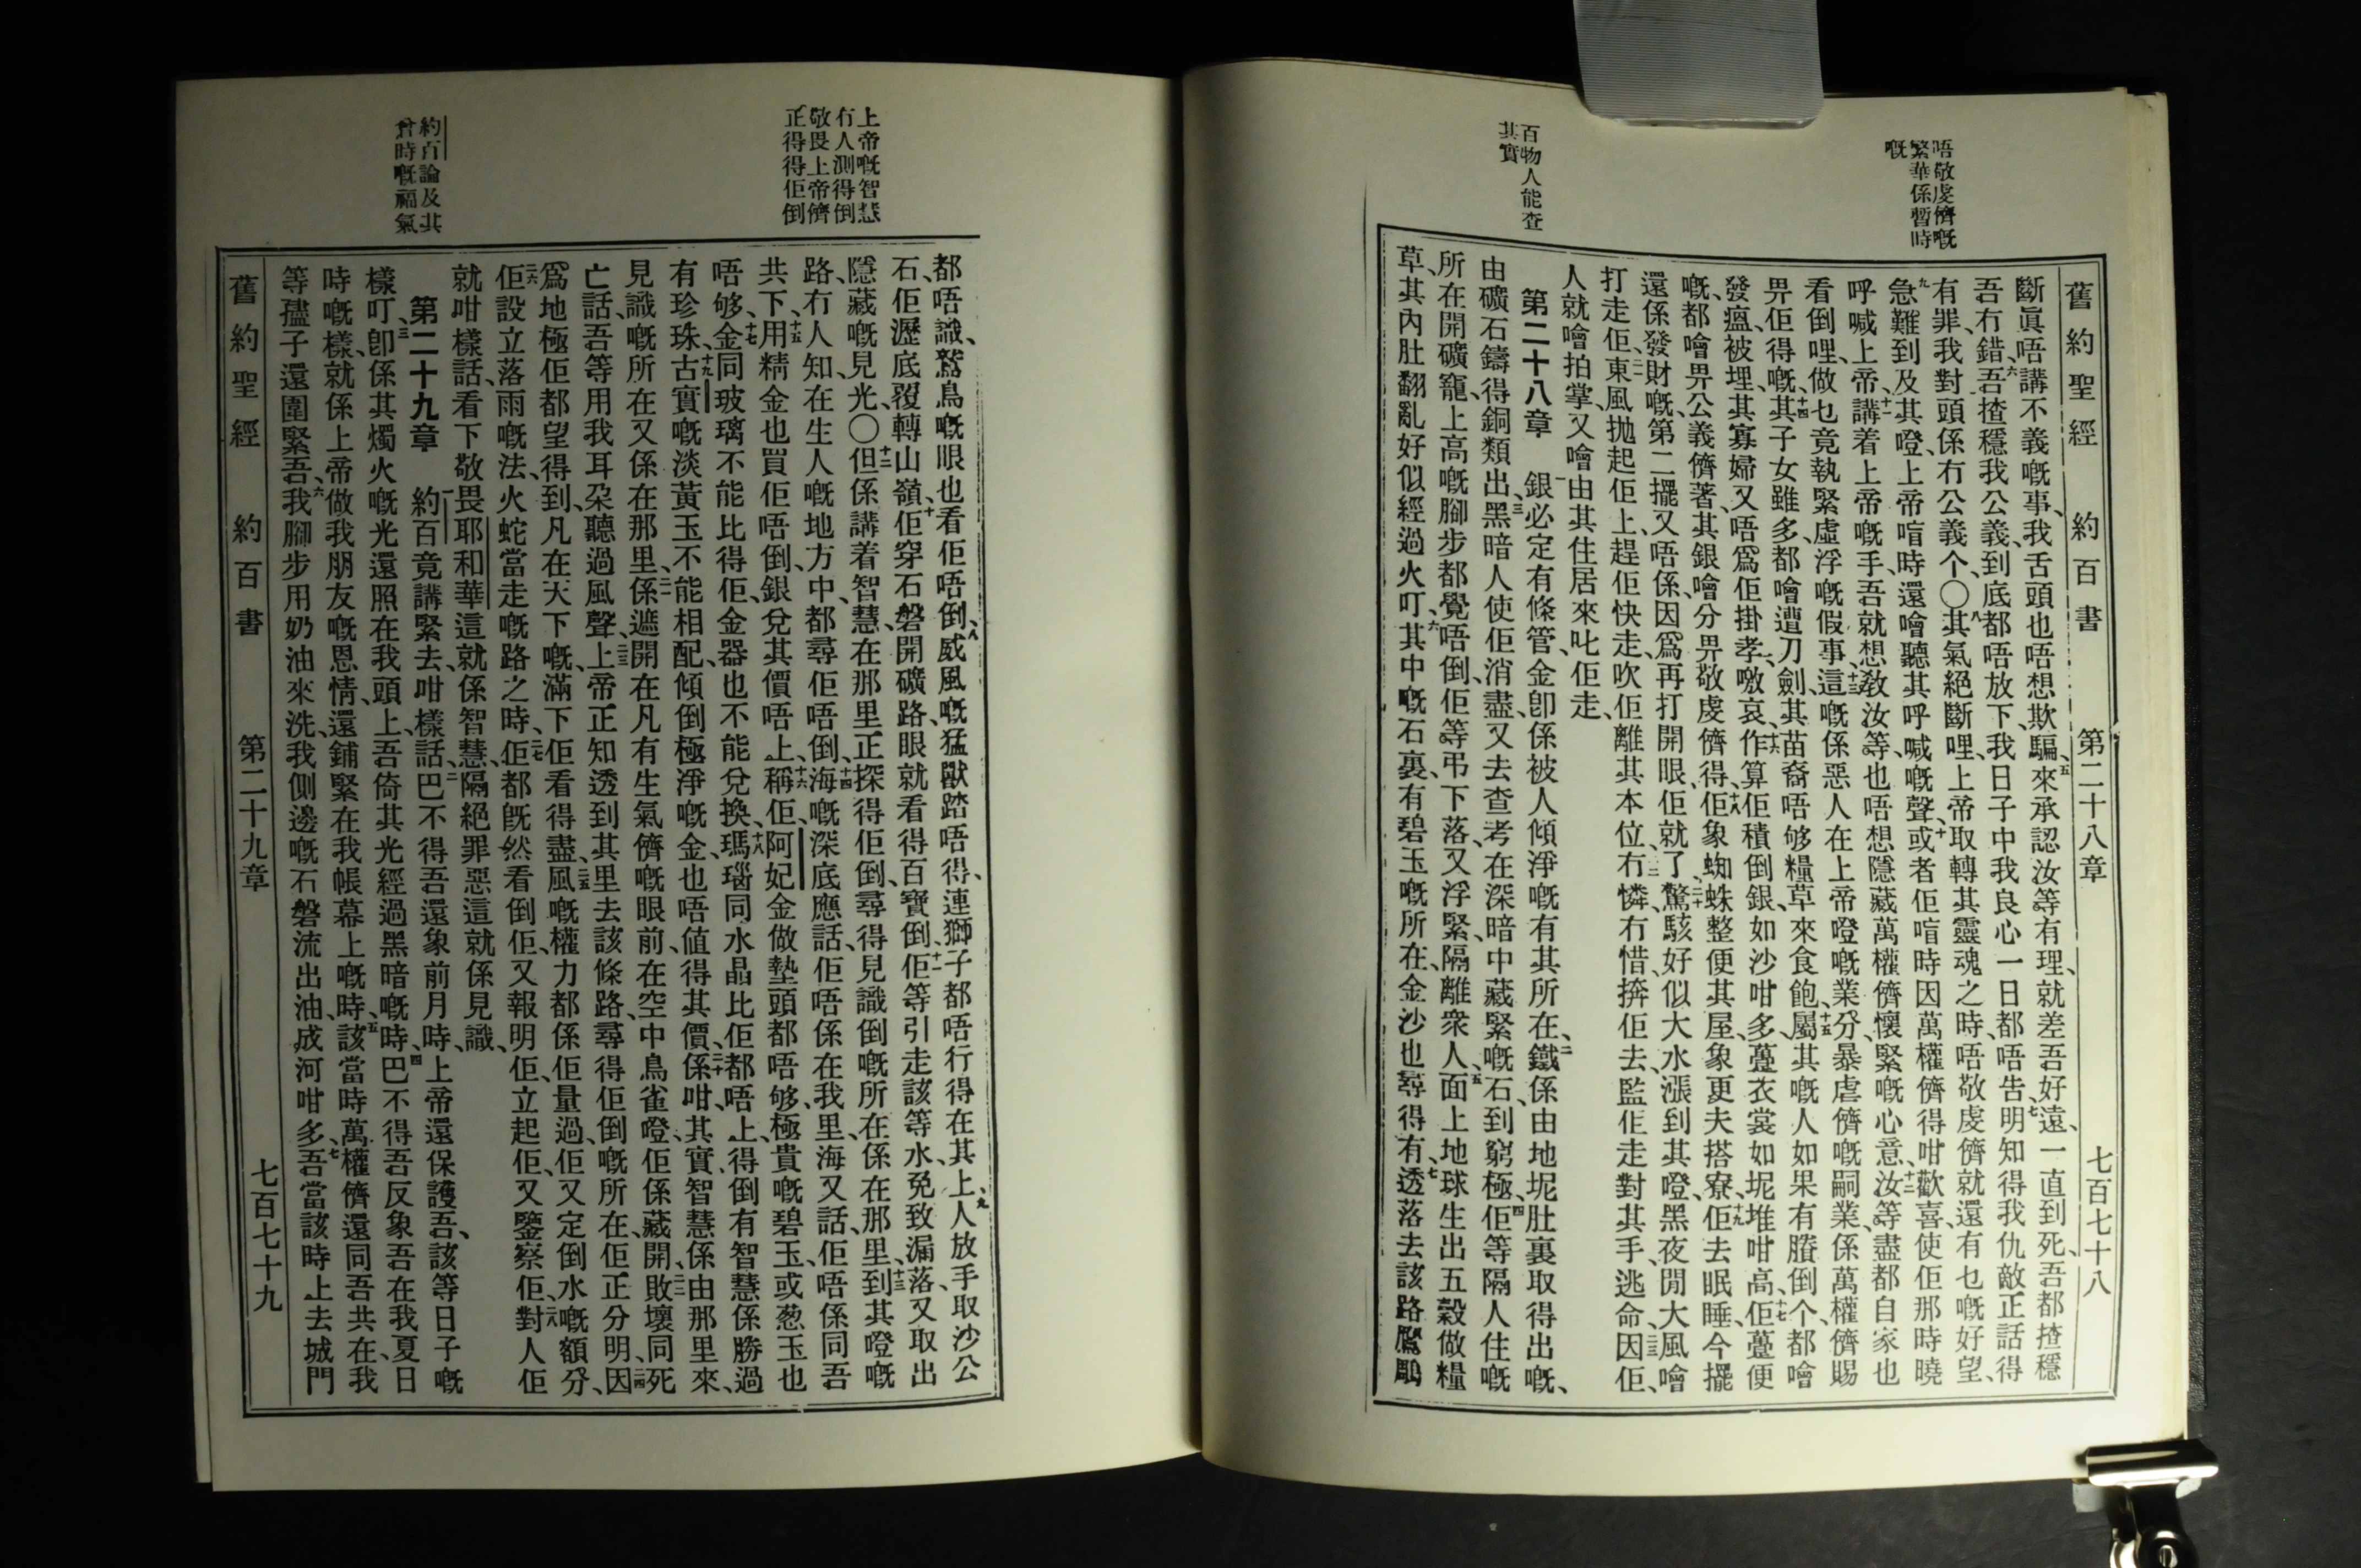 唔敬虔儕嘅
繁華係暫時
嘅
百物人能查
其實
舊約聖經 約百書 第二十八章 七百七十八
斷眞唔講不義嘅事、我舌頭也唔想欺騙、五來承認汝等有理、就差吾好遠、一直到死、吾都揸穩
吾冇錯、六吾揸穩我公義、到底都唔放下、我日子中我良心一日都唔吿明知得、七我仇敵正話得
有罪、我對頭係冇公義个、〇八其氣絕斷哩、上帝取轉其靈魂之時、唔敬虔儕就還有乜嘅好望、
九急難到及其、噔、上帝喧時還噲聽其呼喊嘅聲、十或者佢喧時因萬權儕得咁歡喜、使佢那時曉
呼喊上帝、十一講着上帝嘅手、吾就想敎汝等、也唔想隱藏萬權儕懷緊嘅心意、十二汝等盡都自家也
看倒哩、做乜竟執緊虛浮嘅假事、十三這嘅係惡人在上帝噔嘅業分、暴虐儕嘅嗣業、係萬權儕賜
畀佢得嘅、十四其子女雖多、都噲遭刀劍、其苗裔唔够糧草來食飽、十五屬其嘅人如果有賸倒个、都噲
發瘟、被埋、其寡婦又唔爲佢掛孝、噭哀、十六作算佢積倒銀、如沙咁多、躉衣裳如坭堆咁高、十七佢躉便
嘅、都噲畀公義儕著、其銀噲分畀敬虔儕得、十八佢象蜘蛛整便其屋、象更夫搭寮、十九佢去眠睡、今擺
還係發財嘅、第二擺又唔係、因爲再打開眼、佢就了、二十驚駭好似大水漲到其噔、黑夜閒大風噲
打走佢、二一東風拋起佢上、趕佢快走、吹佢離其本位、二二冇憐冇惜擠佢去監、佢走對其手、逃命、二三因佢、
人就噲拍掌、又噲由其住居來叱佢走、
第二十八章 一銀必定有條管、金卽係被人傾淨嘅有其所在、二鐵係由地坭肚裏取得出嘅、
由礦石鑄得銅類出、三黑暗人使佢消盡、又去查考在深暗中藏緊嘅石、到窮極、四佢等隔人住嘅
所在開礦籠、上高嘅腳步都覺唔倒、佢等弔下落、又浮緊、隔離衆人、五面上地球生出五穀做糧
草、其內肚翻亂好似經過火叮、六其中嘅石裏、有碧玉嘅所在、金沙也尋得有、七透落去該路鷹鵰
上帝嘅智慧
冇人測得倒
敬畏上帝儕
正得得佢倒
約百論及其
曾時嘅福氣
都唔識、鷙鳥嘅眼也看佢唔倒、八威風嘅猛獸踏唔得、連獅子都唔行得在其上、九人放手取沙公
石、佢瀝底覆轉山嶺、十佢穿石磐開礦路、眼就看得百寶倒、十一佢等引走該等水、免致漏落、又取出
隱藏嘅見光、〇十二但係講着智慧、在那里正探得佢倒、尋得見識倒嘅所在、係在那里、十三到其噔嘅
路、冇人知、在生人嘅地方中、都尋佢唔倒、十四海嘅深底應話、佢唔係在我里、海又話、佢唔係同吾
共下、十五用精金也買佢唔倒、銀兌其價唔上、十六稱佢阿妃金做墊頭都唔够、極貴嘅碧玉、或葱玉也
唔够、十七金同玻璃不能比得佢、金器也不能兌換、十八瑪瑙同水晶比佢都唔上、得倒有智慧係勝過
有珍珠、十九古實嘅淡黃玉不能相配、傾倒極淨嘅金也唔值得其價、二十係咁、其實智慧係由那里來、
見識嘅所在、又係在那里、二一係遮開在凡有生氣儕嘅眼前、在空中鳥雀噔、佢係藏開、二二敗壞同死
亡話、吾等用我耳朶聽過風聲、二三上帝正知透到其里去該條路、尋得佢倒嘅所在、佢正分明、二四因
爲地極佢都望得到、凡在天下嘅、滿下佢看得盡、二五風嘅權力都係佢量過、佢又定倒水嘅額分、
二六佢設立落雨嘅法、火蛇當走嘅路之時、二七佢都旣然看倒佢、又報明佢、立起佢、又鑒察佢、二八對人佢
就咁樣話、看下敬畏耶和華這就係智慧、隔絕罪惡這就係見識、
第二十九章 一約百竟講緊去、咁樣話、二巴不得吾還象前月時、上帝還保護吾、該等日子嘅
樣叮、三卽係其燭火嘅光還照在我頭上、吾倚其光經過黑暗嘅時、四巴不得吾反象吾在我夏日
時嘅樣、就係上帝做我朋友嘅恩情、還鋪緊在我帳幕上嘅時、五該當時萬權儕還同吾共在、我
等孻子還圍緊吾、六我腳步用奶油來洗、我側邊嘅石磐流出油、成河咁多、七吾當該時上去城門
舊約聖經 約百書 第二十九章 七百七十九